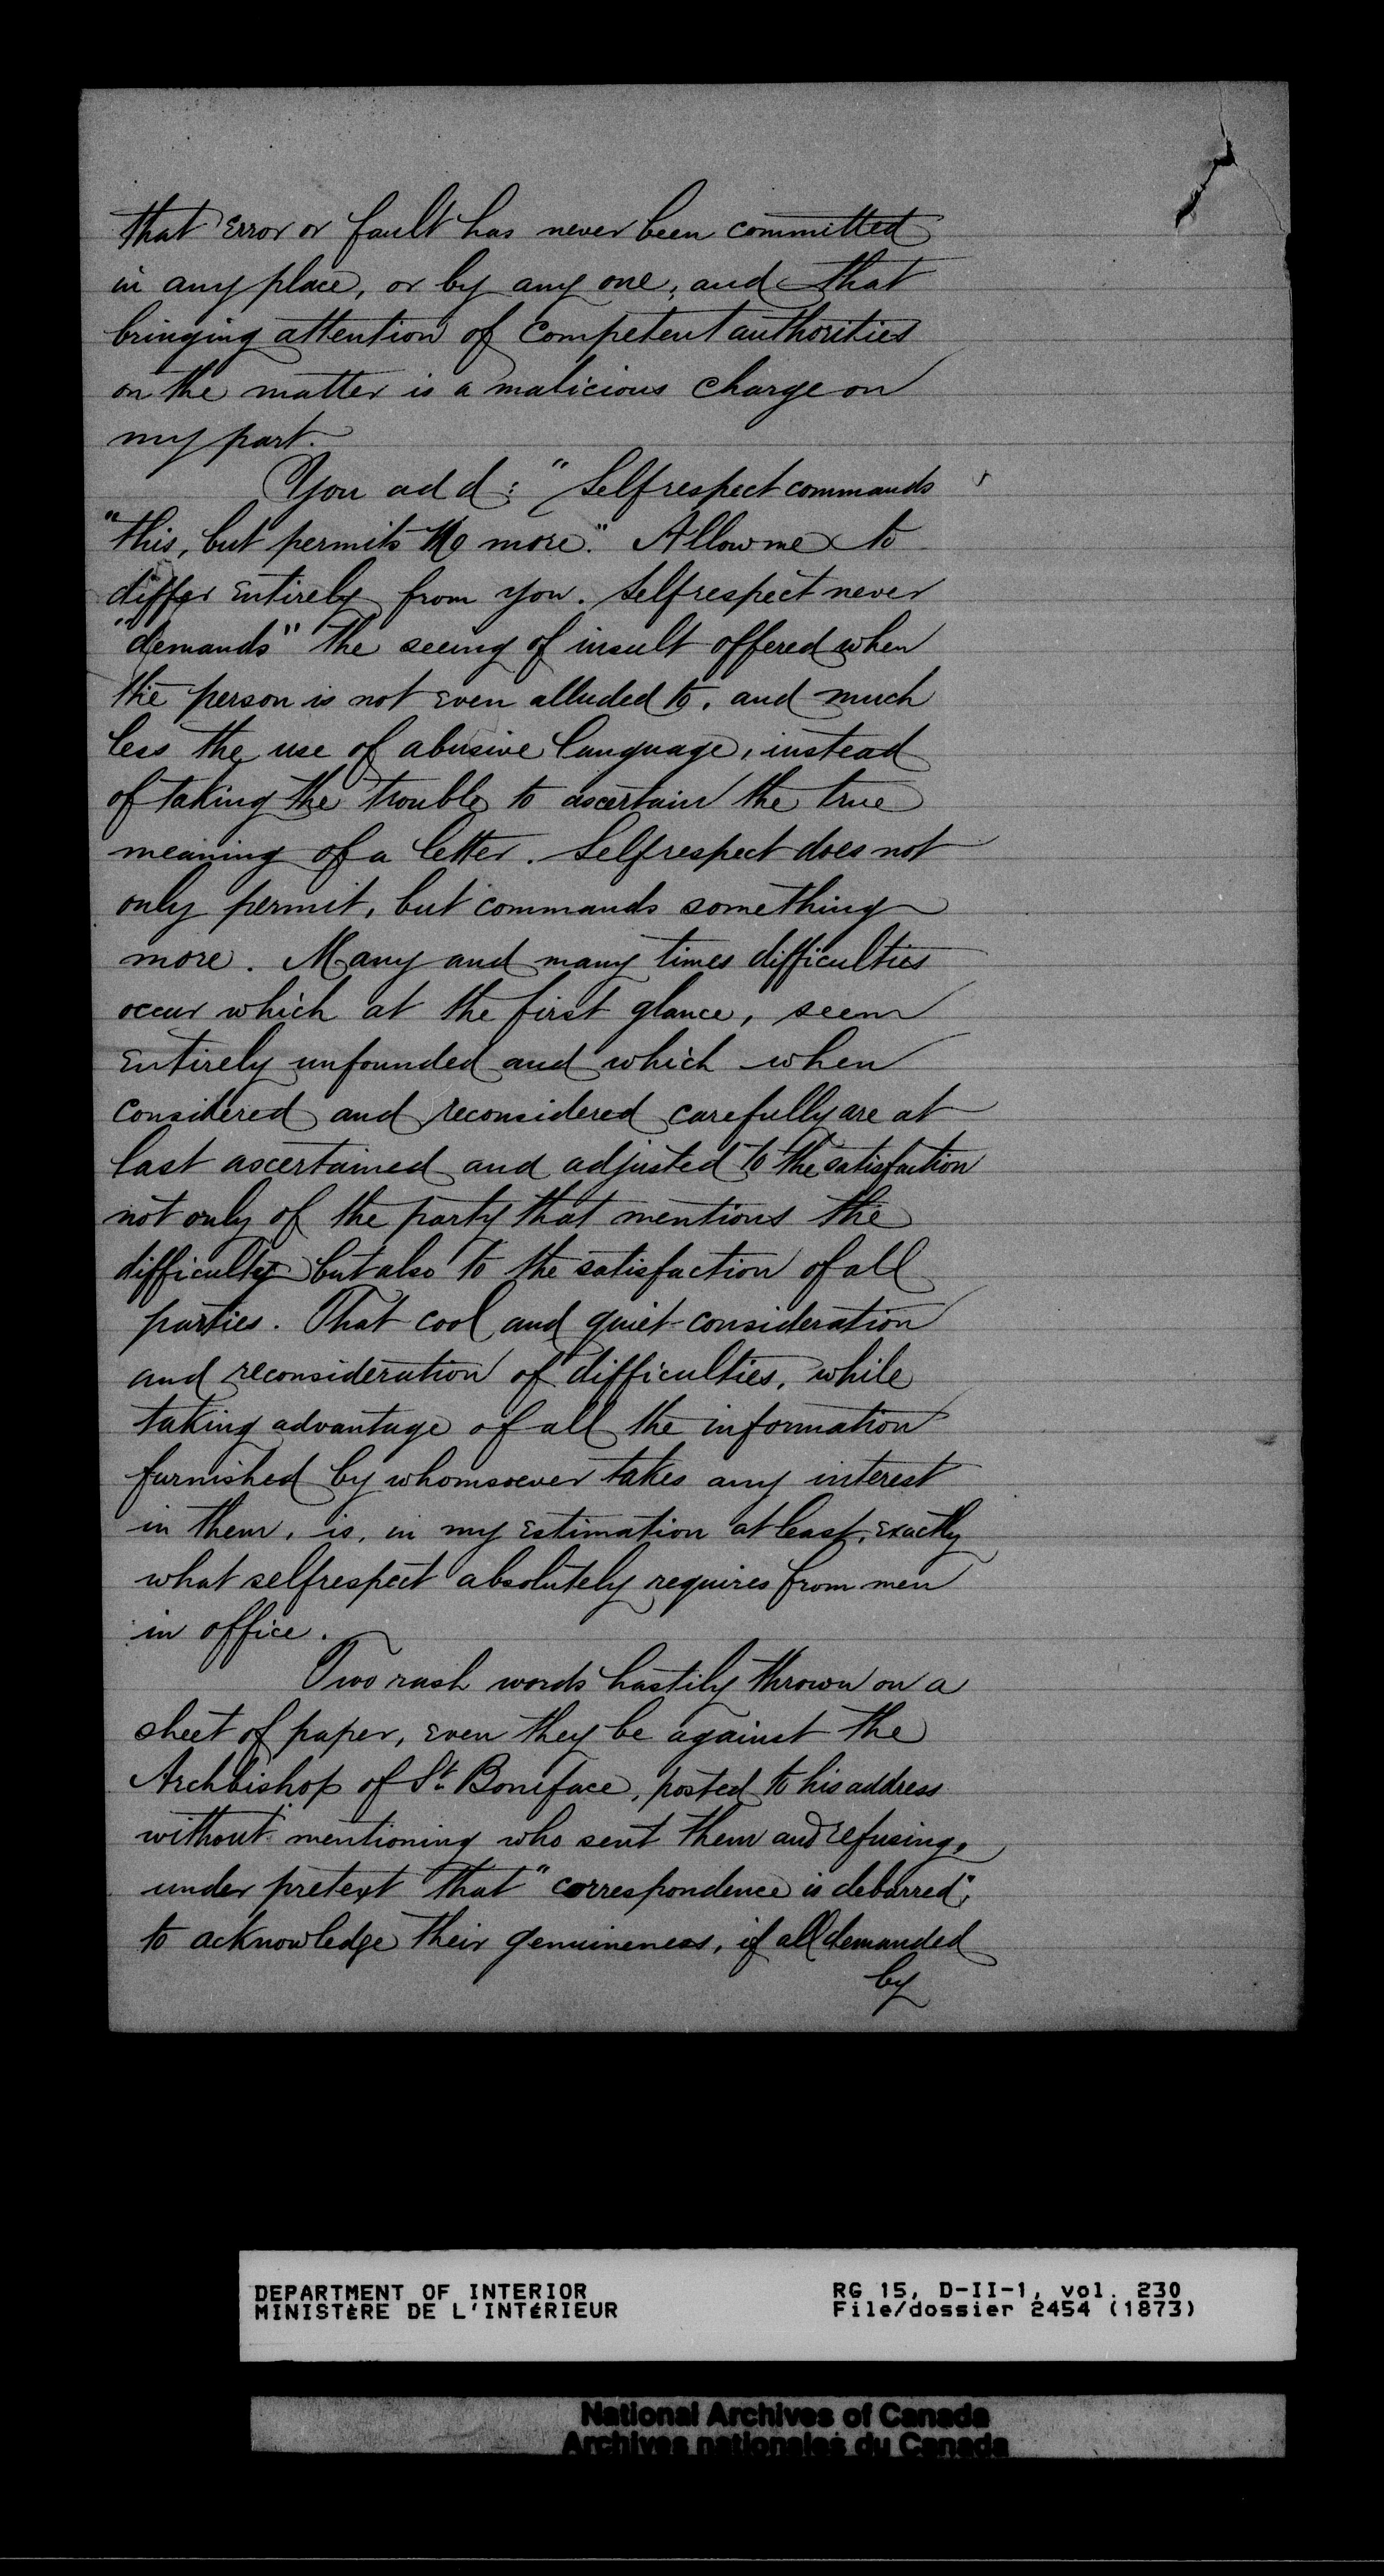 that Error or fault has never been committed
in any place, or by any one, and that
bringing attention of Competent authorities
on the matter is a malicious charge on
my part.
You add: "Selfrespect commands
"this, but permits No more." Allow me to
differ Entirely from you. Selfrespect never
"demands" the seeing of insult offered when
the person is not Even alluded to, and much
less the use of abusive language, instead
of taking the trouble to ascertain the true
meaning of a letter. Selfrespect does not
only permit, but commands something
more. Many and many times difficulties
occur which at the first glance, seem
Entirely unfounded and which when
Considered and reconsidered carefully are at
last ascertained and adjusted to the satisfaction
not only of the party that mentions the
difficulty but also to the satisfaction of all
parties. That cool and quiet consideration
and reconsideration of difficulties, while
taking advantage of all the information
furnished by whomsoever takes any interest
in them, is, in my Estimation at least, Exactly
what selfrespect absolutely requires from men
in office.
Two rash words hastily thrown on a
sheet of paper, Even they be against the
Archbishop of St. Boniface, posted to his address
without mentioning who sent them and refusing,
under pretext that "correspondence is debarred",
to acknowledge their genuineness, if all demanded
by
DEPARTMENT OF INTERIOR
MINISTÈRE DE L'INTÉRIEUR
RG 15, D-II-1, vol. 230
File/dossier 2454 (1873)
National Archives of Canada
Archives nationales du Canada